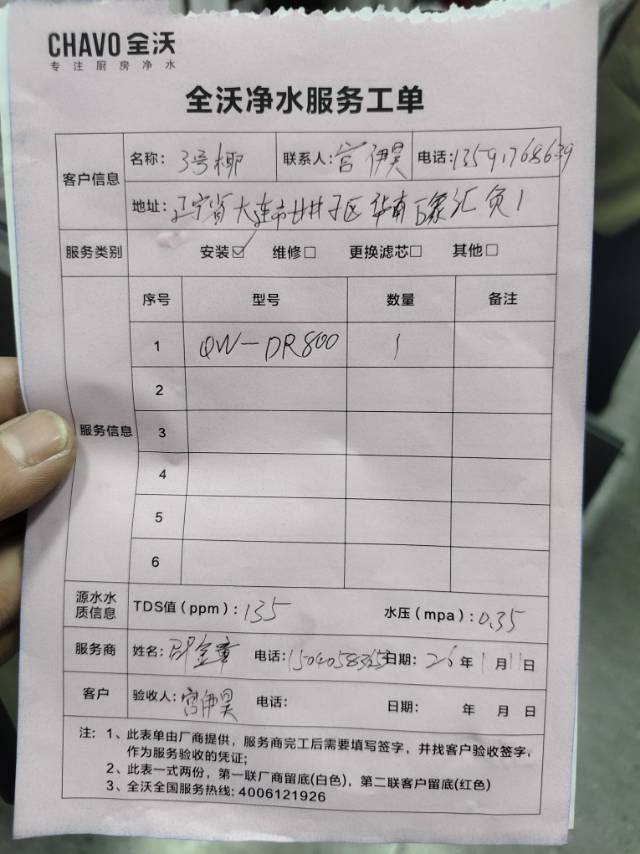 CHAVO 全沃
专注厨房净水
全沃净水服务工单
客户信息 名称：3号椰 联系人：宫伊昊 电话：13591768639
地址：辽宁省大连市甘井子区华南百家汇负1
服务类别 安装☑ 维修□ 更换滤芯□ 其他□
服务信息 序号 型号 数量 备注
1 QW-DR800 1
2
3
4
5
6
源水水质信息 TDS值（ppm）：135 水压（mpa）：0.35
服务商 姓名： 电话： 日期：26年1月11日
客户 验收人：宫伊昊 电话： 日期： 年 月 日
注：1、此表单由厂商提供，服务商完工后需要填写签字，并找客户验收签字，
作为服务验收的凭证；
2、此表一式两份，第一联厂商留底(白色)，第二联客户留底(红色)
3、全沃全国服务热线: 4006121926